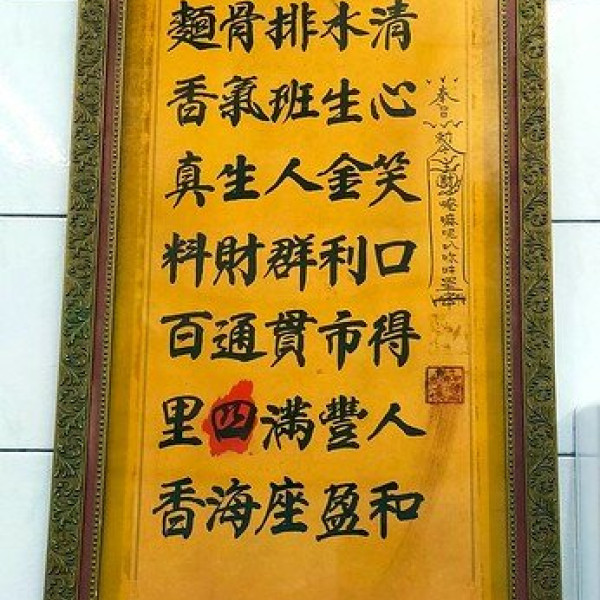 清心笑口得人和
水生金利市豐盈
排班人群貫滿座
骨氣生財通四海
麵香真料百里香
奉
唵嘛呢叭